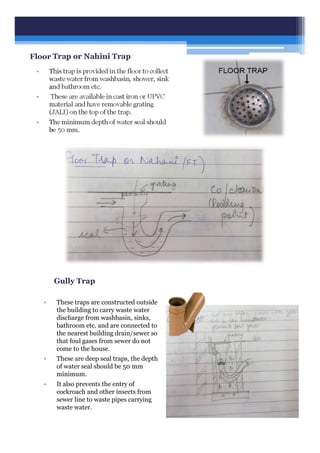 Floor Trap or Nahini Trap
• This trap is provided in the floor to collect
waste water from washbasin, shower, sink
and bathroom etc.
• These are available in cast iron or UPVC
material and have removable grating
(JALI) on the top of the trap.
• The minimum depth of water seal should
be 50 mm.
FLOOR TRAP
Floor Trap or Nahani (FT)
grating
seal
Co /
point)
Gully Trap
• These traps are constructed outside
the building to carry waste water
discharge from washbasin, sinks,
bathroom etc. and are connected to
the nearest building drain/sewer so
that foul gases from sewer do not
come to the house.
• These are deep seal traps, the depth
of water seal should be 50 mm
minimum.
• It also prevents the entry of
cockroach and other insects from
sewer line to waste pipes carrying
waste water.